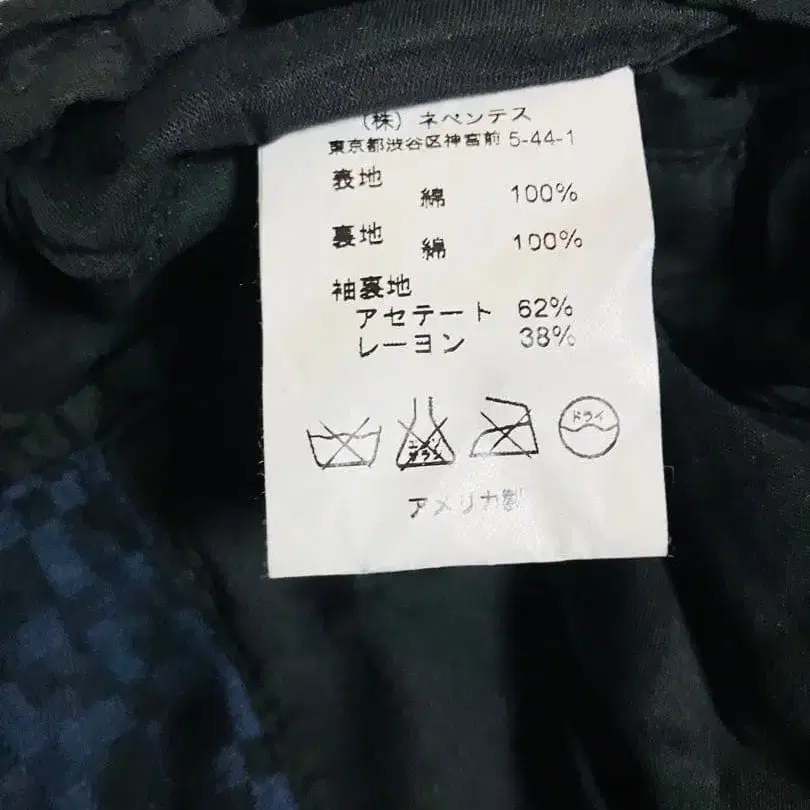 (株) ネペンテス
東京都渋谷区神宮前 5-44-1
表地
綿 100%
裏地
綿 100%
袖裏地
アセテート 62%
レーヨン 38%
エンソ サラシ ドライ
アメリカ製